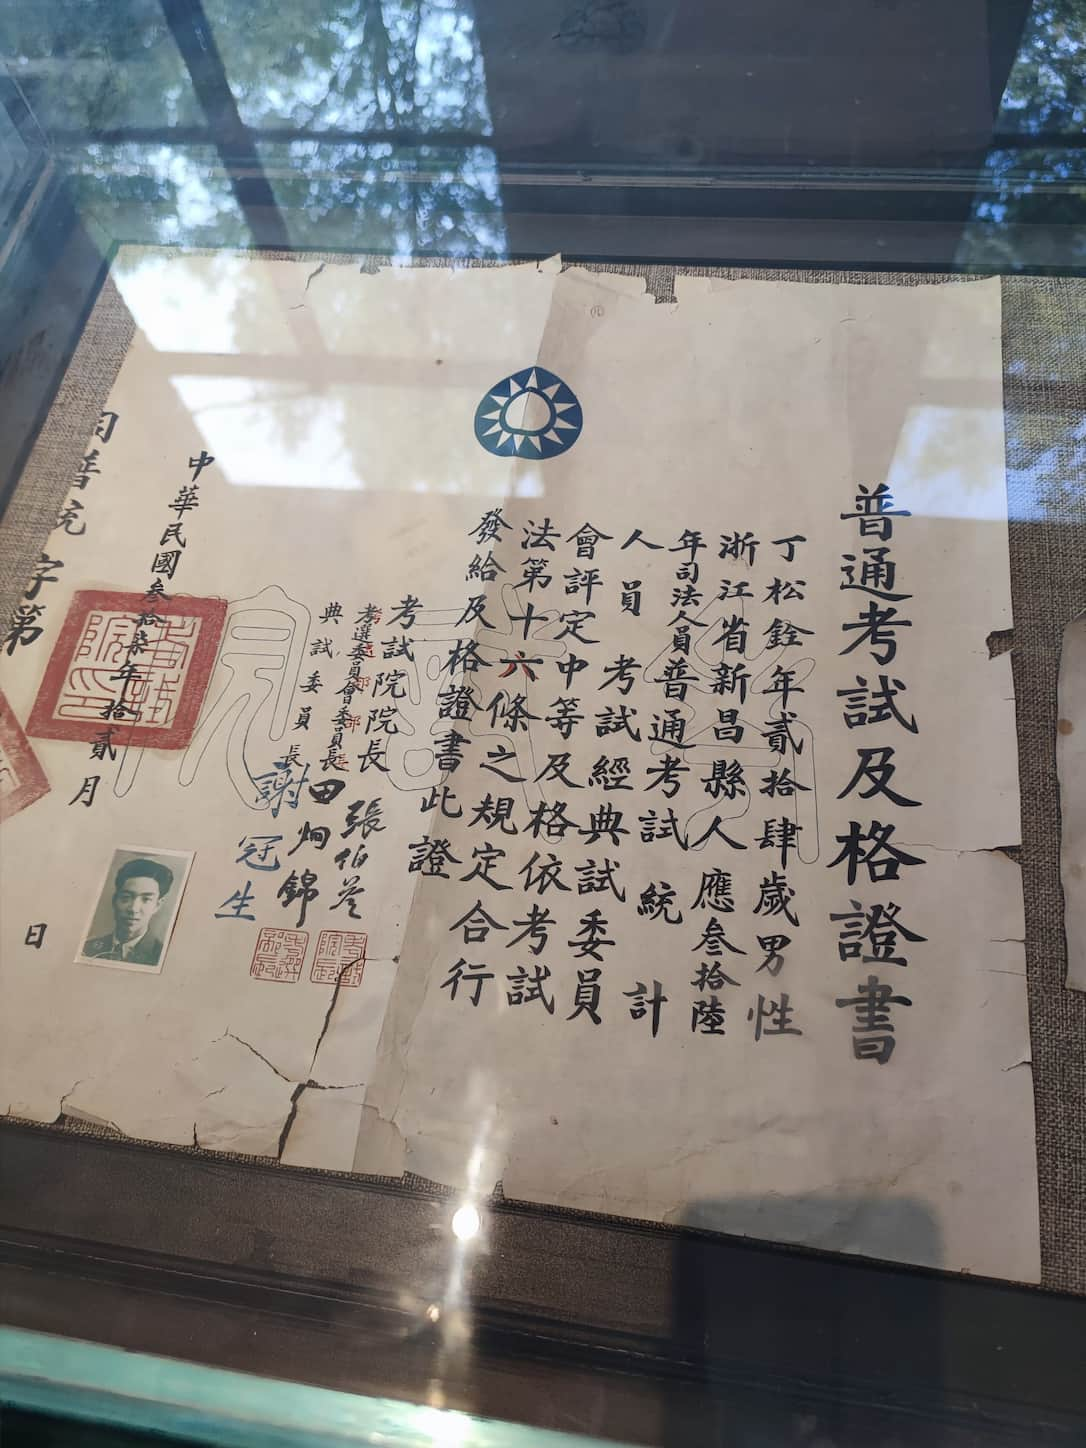 普通考試及格證書
丁松銓年貳拾肆歲男性
浙江省新昌縣人應叁拾陸
年司法人員普通考試統計
人員考試經典試委員
會評定中等及格依考試
法第十六條之規定合行
發給及格證書此證
考試院院長張伯苓
考選委員會委員長田炯錦
典試委員長謝冠生
中華民國叁拾柒年拾貳月日
普統字第